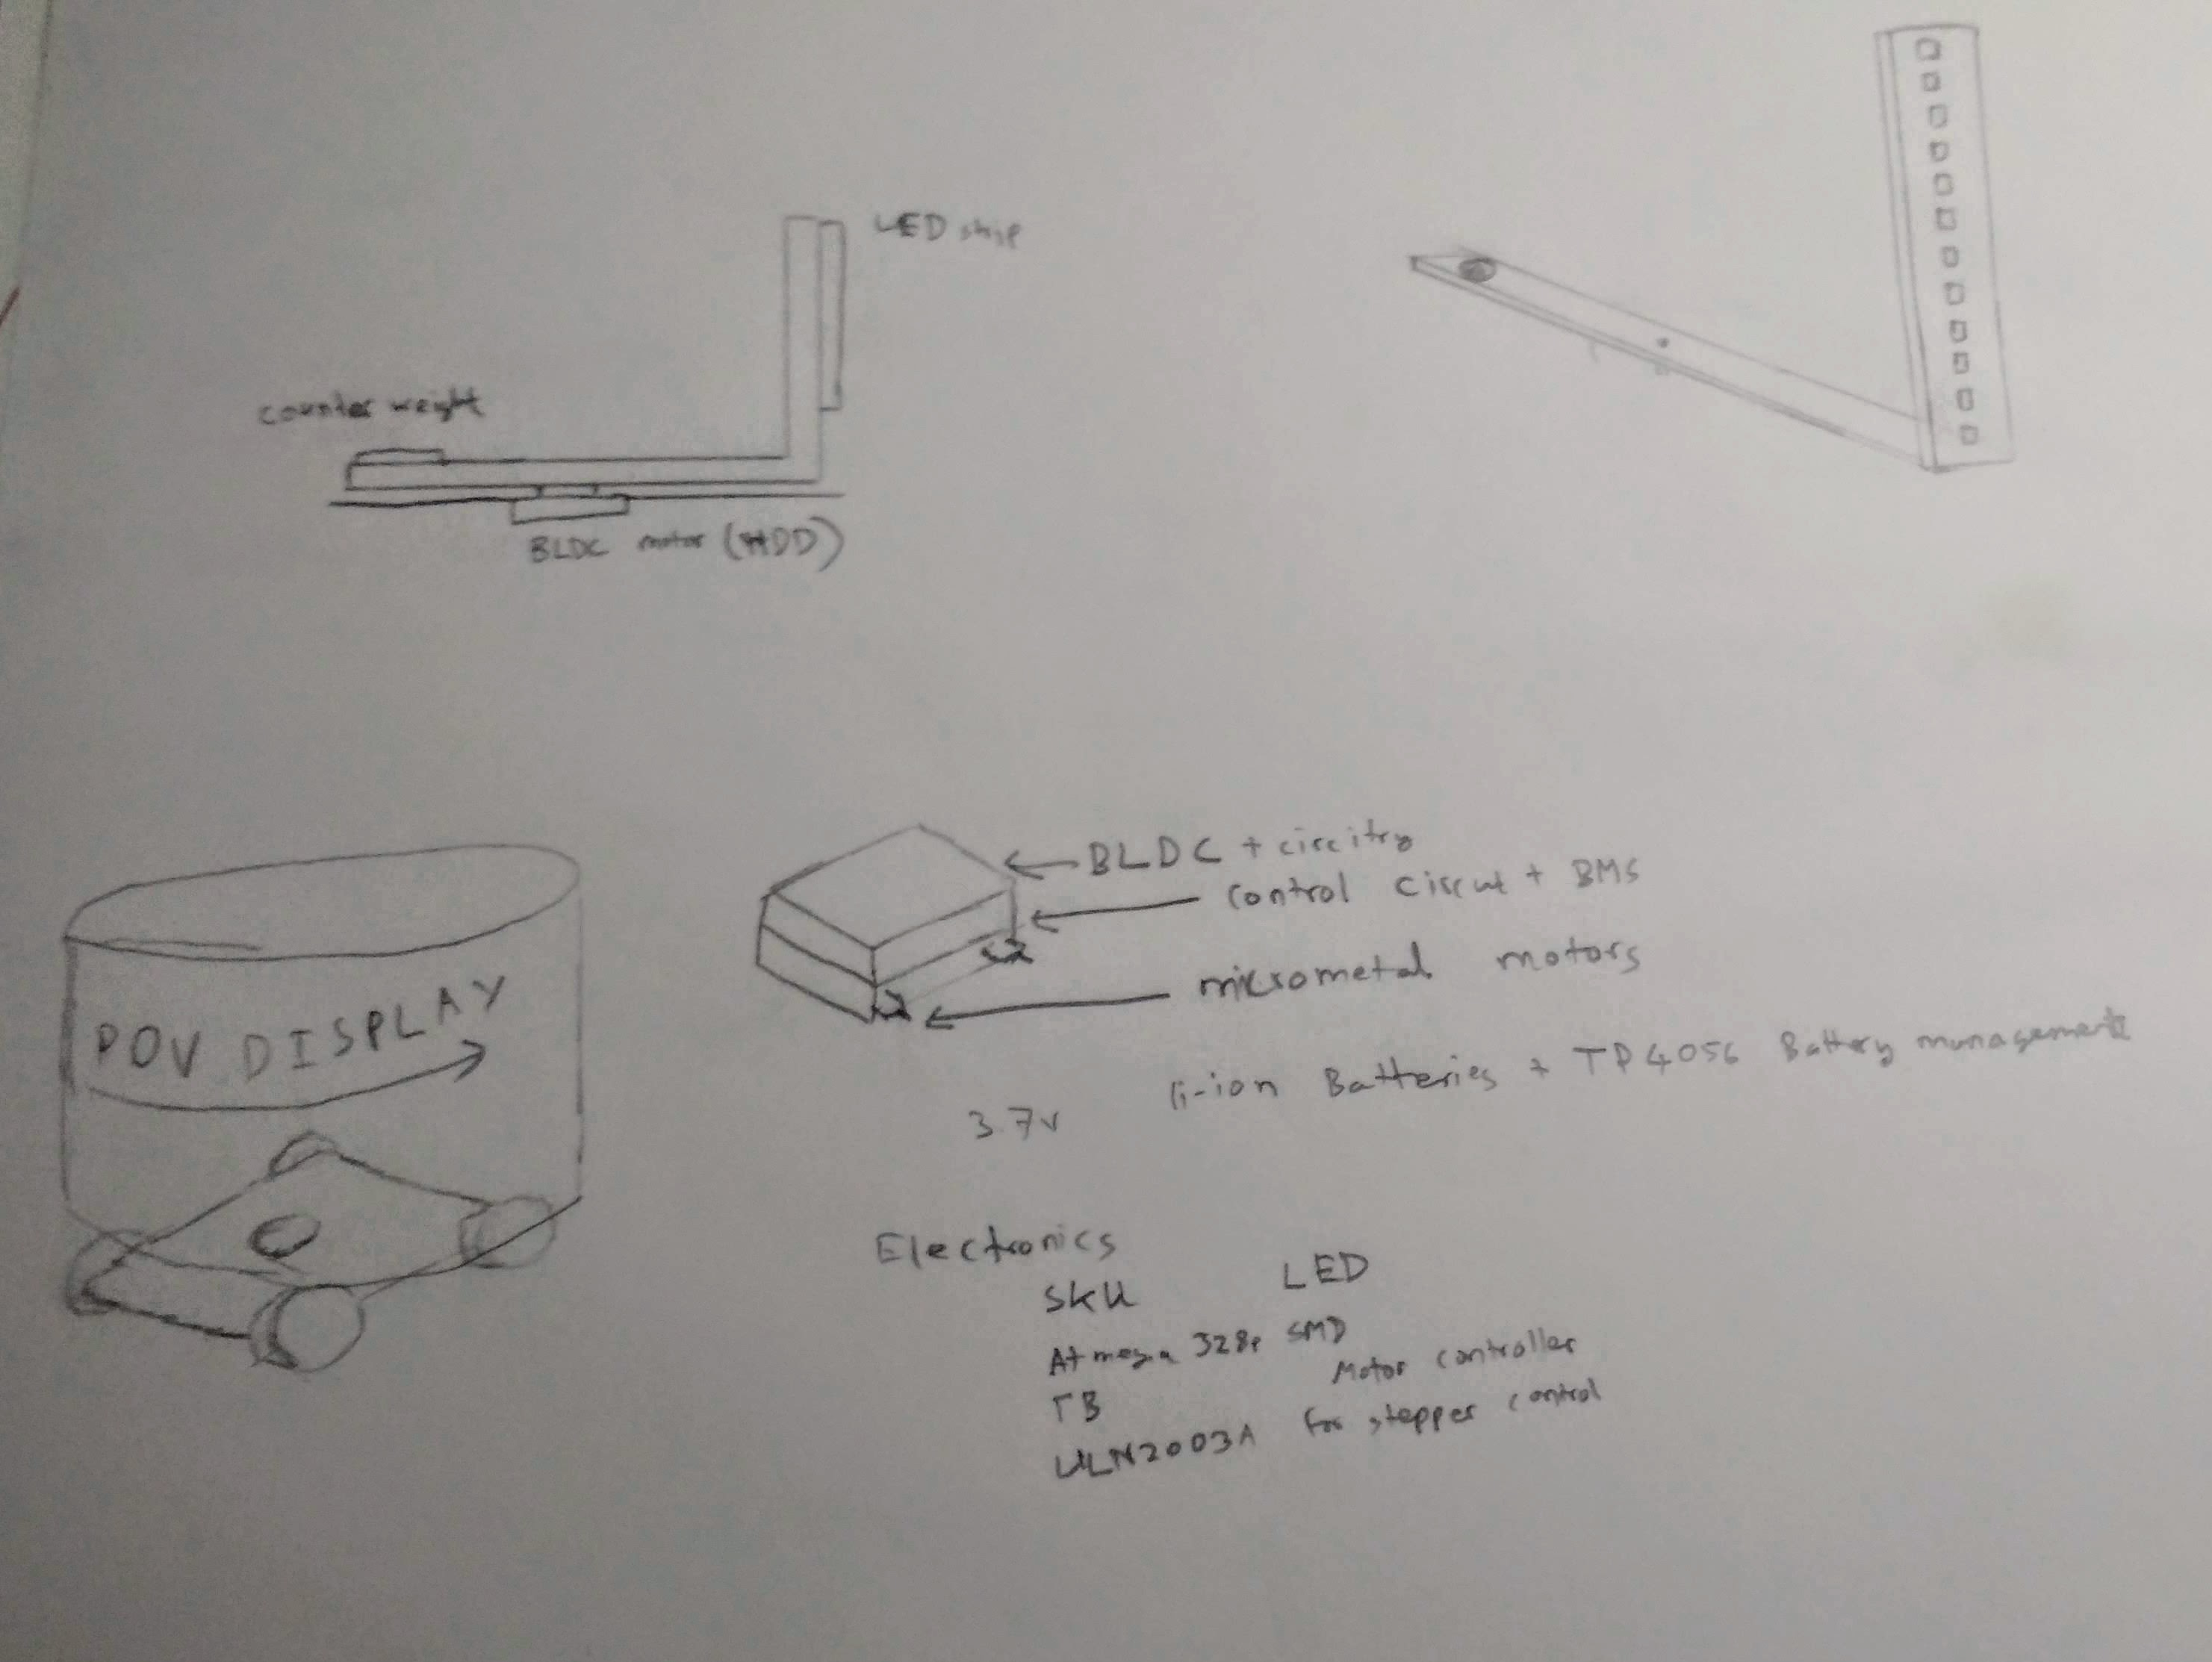 LED strip
counter weight
BLDC motor (HDD)
BLDC + circitry
control circut + BMS
micrometal motors
li-ion Batteries + TP4056 Battery management
3.7v
POV DISPLAY
Electronics
SKU LED
Atmega 328p SMD
TB Motor controller
ULN2003A for stepper control